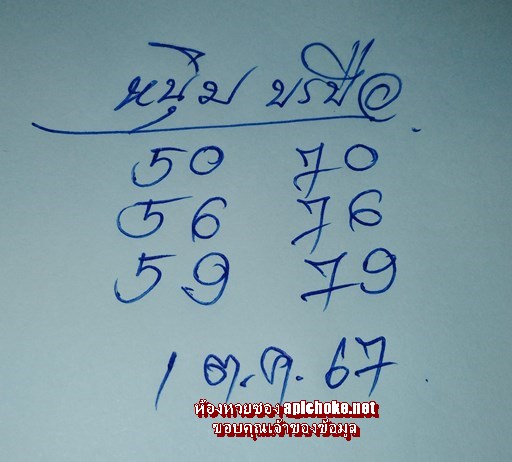 หนุ่ม บรบือ
50 70
56 76
59 79
1 ต.ค. 67
ห้องหวยซอง apichoke.net
ขอบคุณเจ้าของข้อมูล